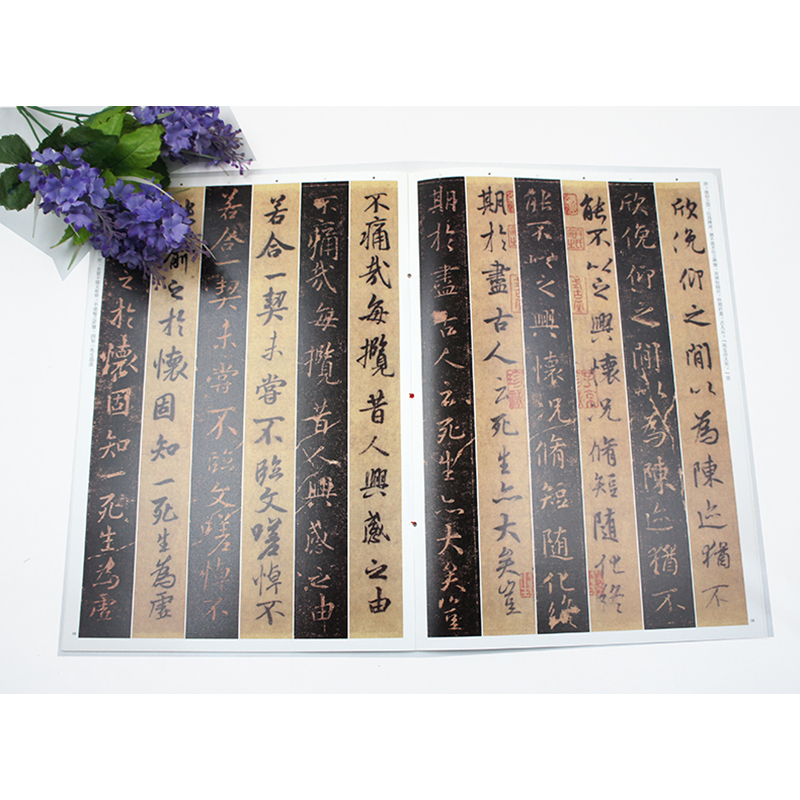 欣俛仰之間以為陳迹猶不
欣俛仰之間以為陳迹猶不
能不以之興懷況脩短隨化終
能不以之興懷況脩短隨化終
期於盡古人云死生亦大矣豈
期於盡古人云死生亦大矣豈
不痛哉每攬昔人興感之由
不痛哉每攬昔人興感之由
若合一契未嘗不臨文嗟悼不
若合一契未嘗不臨文嗟悼不
能喻之於懷固知一死生為虛
之於懷固知一死生為虛